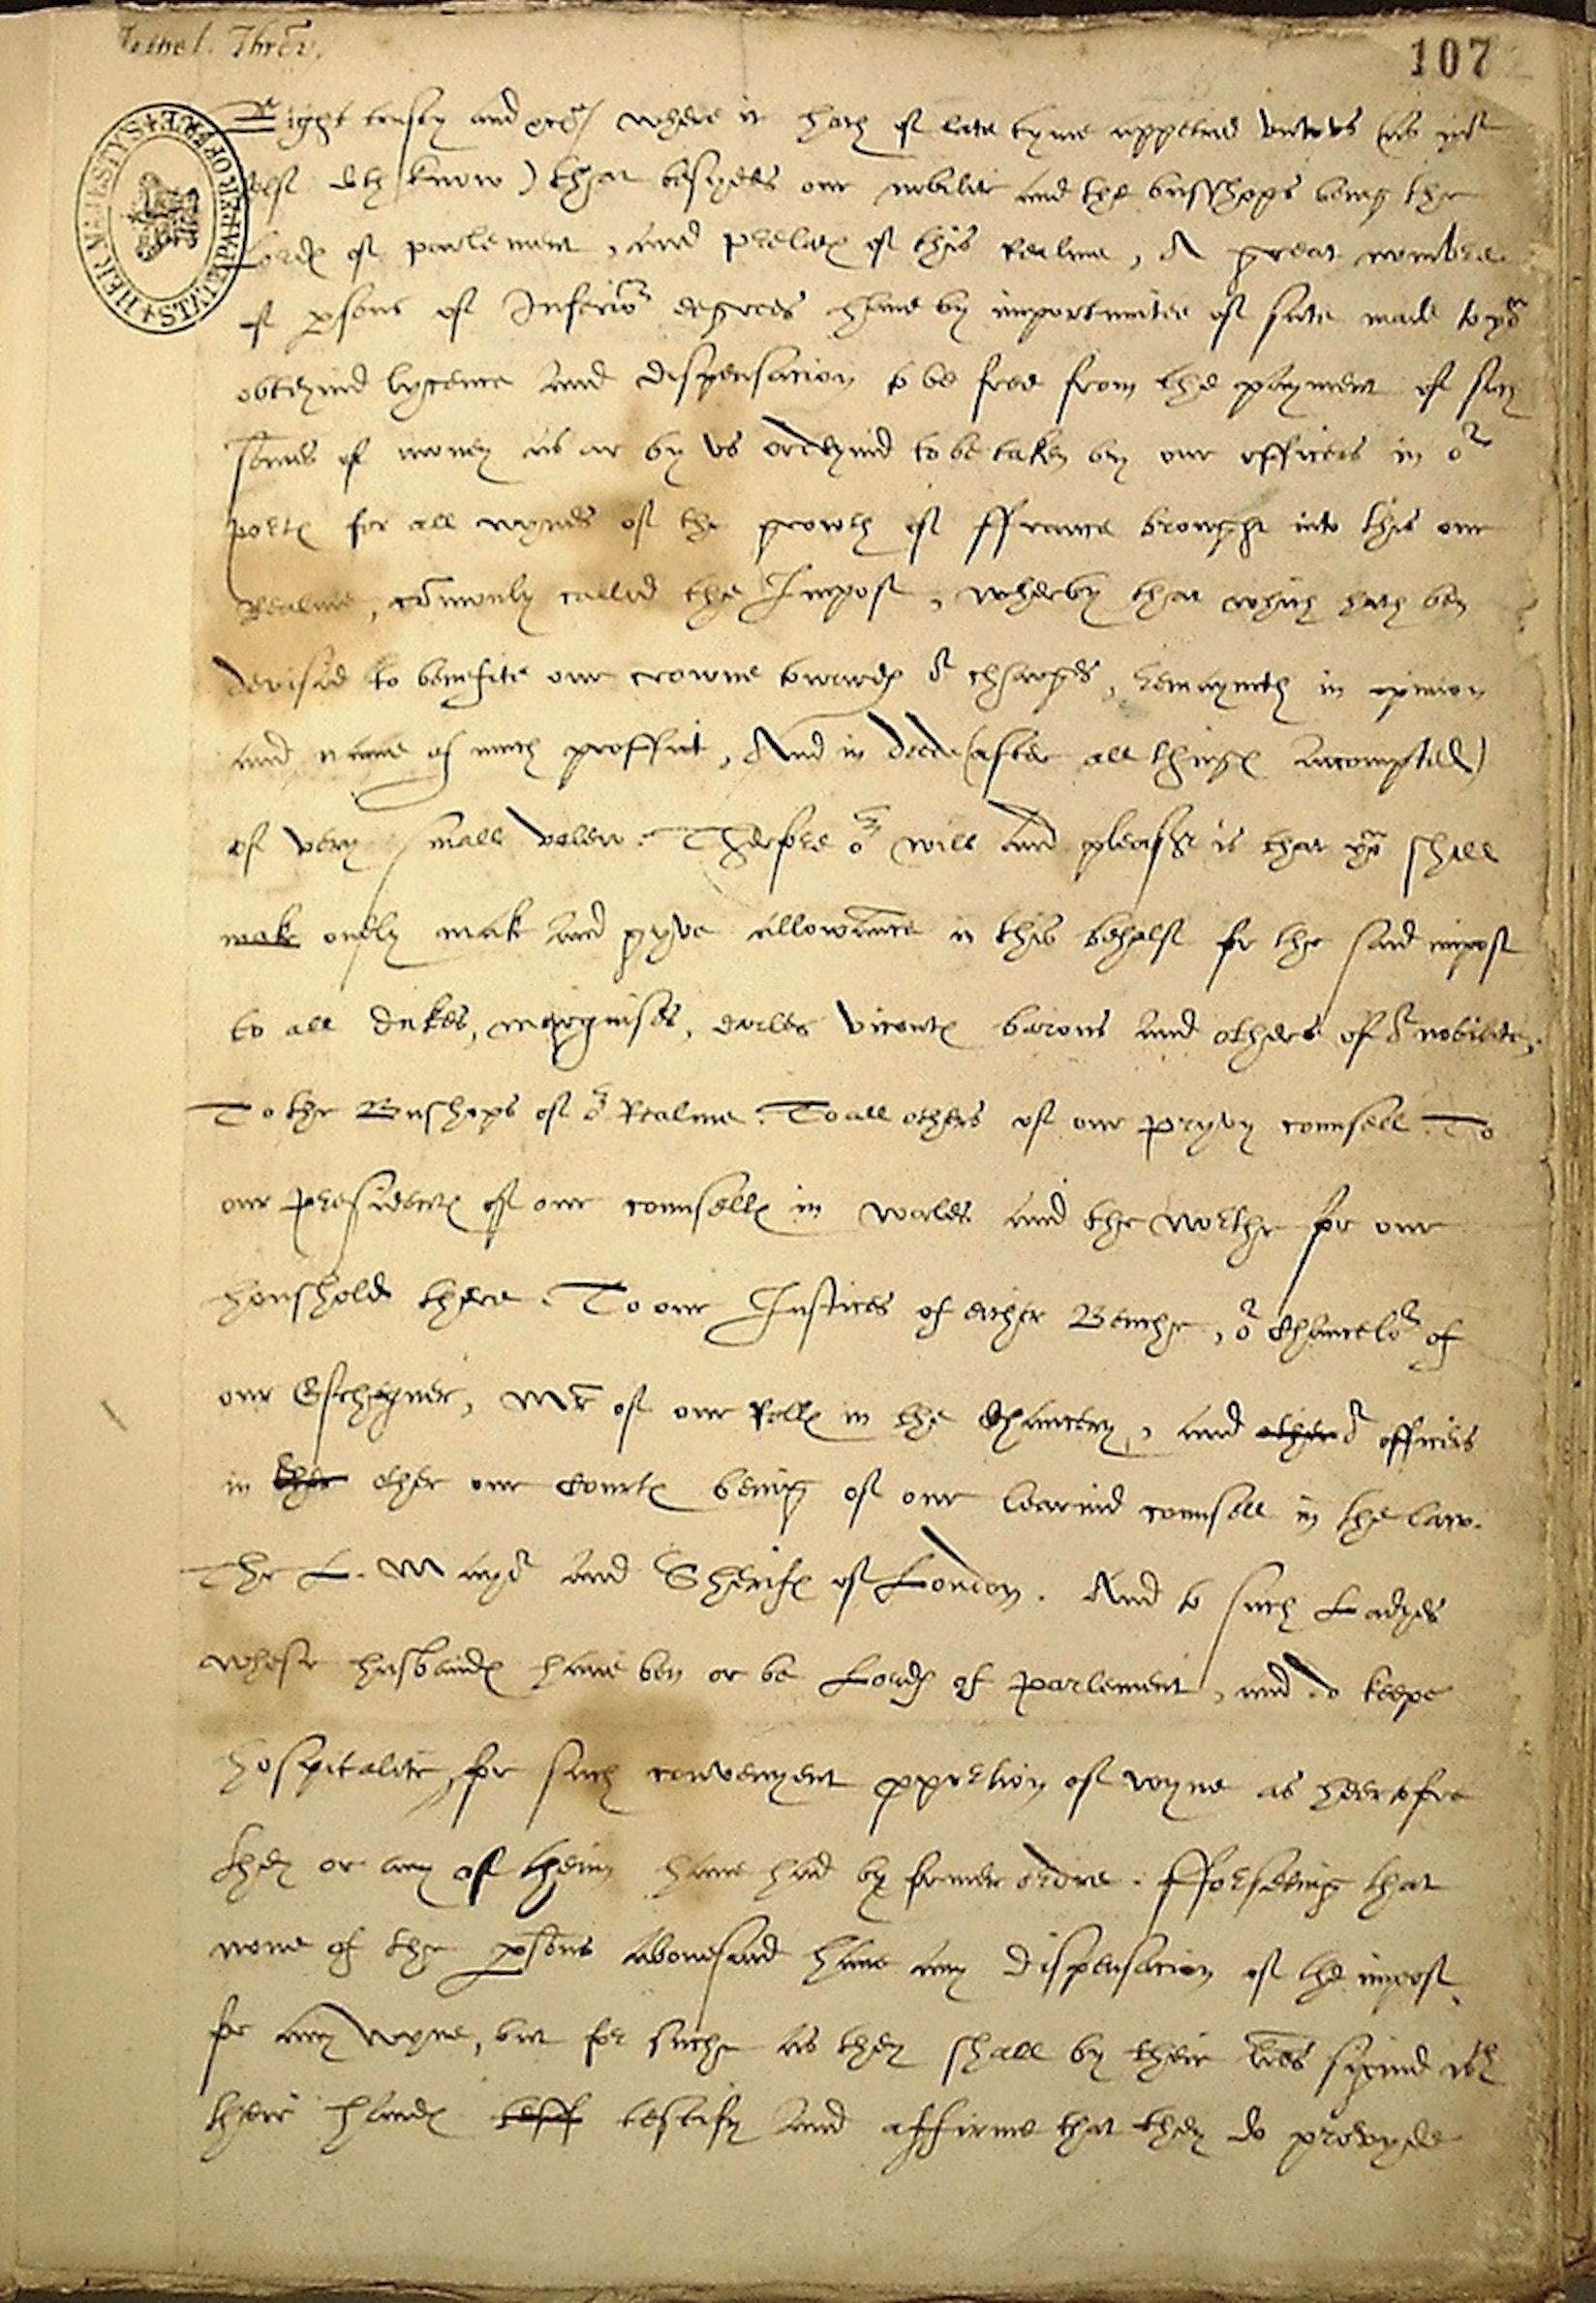 107
STATE PAPER OFFICE HER MAJESTY'S
Right trusty and &c where it hath of late tyme appered unto us (as yor
self doth know) that besydes our nobilite and the bisshops being the
Lordes of parlement, and prelates of this Realme, A great nombre
of psons of Inferior degrees have by importunitee of sute made to yow
obteynid lycence and dispensacion to be free from the payment of such
somes of money as ar by us ordeynid to be taken by our officers in or
portes for all wynes of the growth of ffrance browght into this our
Realme, comonly called the Impost, wherby that which hath ben
devised to benefite our crowne towardes or charges, remayneth in opinion
and name of much proffit, And in dede (after all thinges accompted)
of very small valew. Therfore or will and pleasur is that yow shall
make onely mak and gyve allowance in this behalf for the said impost
to all dukes, marquises, earles vicontes barons and others of or nobilite,
To the Busshops of or Realme. To all others of our pryvy counsell. To
our presidentes of our counselles in wales and the Northe for our
houshold there. To our Justices of either Benche, or Chancelor of
our Eschequer, Mr of our Rolles in the Chancery, and other or officers
in ther other our Courtes being of our learnid counsell in the law.
The L. Mayor and Sherifes of London. And to such Ladyes
whose husbandes have ben or be Lordes of parlement, and do keepe
hospitalite, for such convenyent pportion of wyne as heretofore
they or any of them have had by former ordre. fforseeing that
none of the psons abovesaid have any dispensacion of the impost
for any wyne, but for suche as they shall by their lres signid wth
their handes teff testify and affirme that they do provyde